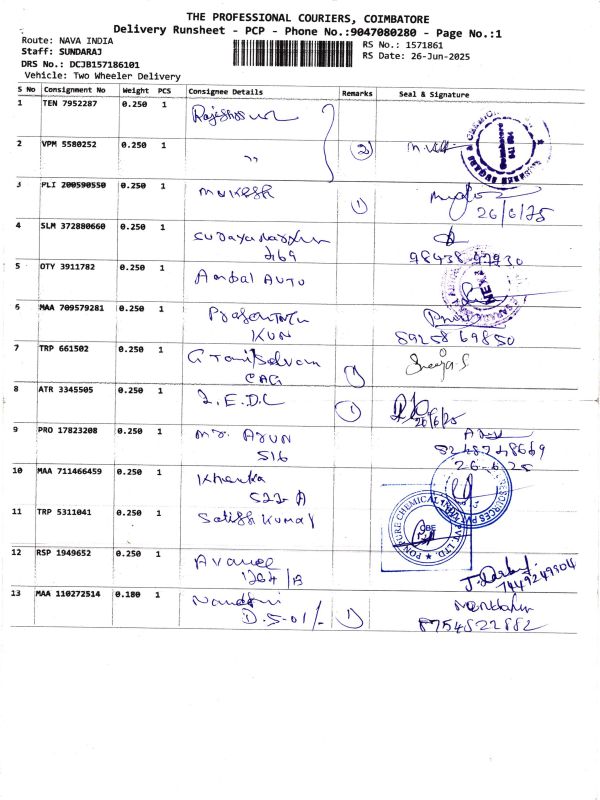 THE PROFESSIONAL COURIERS, COIMBATORE
Delivery Runsheet - PCP - Phone No.:9047080280 - Page No.:1
Route: NAVA INDIA
RS No.: 1571861
Staff: SUNDARAJ
RS Date: 26-Jun-2025
DRS No.: DCJB157186101
Vehicle: Two Wheeler Delivery
S No Consignment No Weight PCS Consignee Details Remarks Seal & Signature
1 TEN 7952287 0.250 1
2 VPM 5580252 0.250 1 " 2
3 PLI 200590550 0.250 1 Mukesh 1
26/6/25
4 SLM 372880660 0.250 1
269 98438 97930
5 OTY 3911782 0.250 1 Ambal Auto
6 MAA 709579281 0.250 1
KUN 89258 69850
7 TRP 661502 0.250 1 G Tamilselvam
CAG 1
8 ATR 3345505 0.250 1 I.E.D.C 1
26/6/25
9 PRO 17823208 0.250 1 Mr. Arun
516 8248748669
26-6-25
10 MAA 711466459 0.250 1
522 A
11 TRP 5311041 0.250 1 Satish Kumar
PON PURE CHEMICAL INDIA PVT. LTD.
CBE
12 RSP 1949652 0.250 1
1264/B 7449249904
13 MAA 110272514 0.180 1 Nandhini
D.5-01/- 1 8754822882